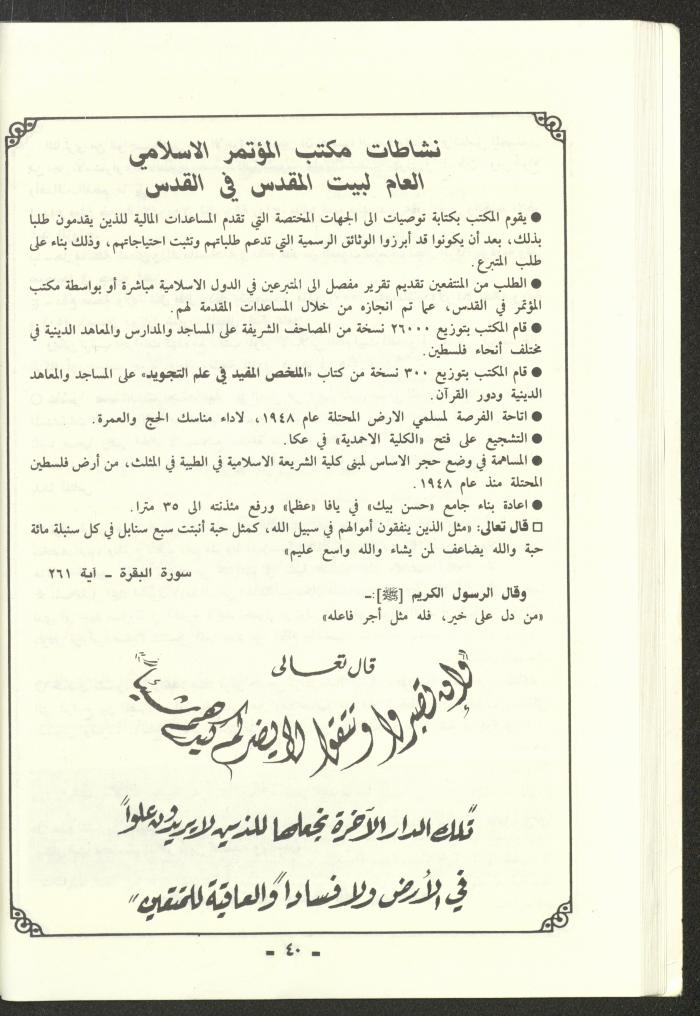 نشاطات مكتب المؤتمر الاسلامي
العام لبيت المقدس في القدس
● يقوم المكتب بكتابة توصيات الى الجهات المختصة التي تقدم المساعدات المالية للذين يقدمون طلبا
بذلك، بعد أن يكونوا قد أبرزوا الوثائق الرسمية التي تدعم طلباتهم وتثبت احتياجاتهم، وذلك بناء على
طلب المتبرع.
● الطلب من المنتفعين تقديم تقرير مفصل الى المتبرعين في الدول الاسلامية مباشرة أو بواسطة مكتب
المؤتمر في القدس، عما تم انجازه من خلال المساعدات المقدمة لهم.
● قام المكتب بتوزيع ٢٦٠٠٠ نسخة من المصاحف الشريفة على المساجد والمدارس والمعاهد الدينية في
مختلف أنحاء فلسطين.
● قام المكتب بتوزيع ٣٠٠ نسخة من كتاب «الملخص المفيد في علم التجويد» على المساجد والمعاهد
الدينية ودور القرآن.
● اتاحة الفرصة لمسلمي الارض المحتلة عام ١٩٤٨، لاداء مناسك الحج والعمرة.
● التشجيع على فتح «الكلية الاحمدية» في عكا.
● المساهمة في وضع حجر الاساس لمبنى كلية الشريعة الاسلامية في الطيبة في المثلث، من أرض فلسطين
المحتلة منذ عام ١٩٤٨.
● اعادة بناء جامع «حسن بيك» في يافا «عظما» ورفع مئذنته الى ٣٥ مترا.
□ قال تعالى: «مثل الذين ينفقون أموالهم في سبيل الله، كمثل حبة أنبتت سبع سنابل في كل سنبلة مائة
حبة والله يضاعف لمن يشاء والله واسع عليم»
سورة البقرة – آية ٢٦١
وقال الرسول الكريم [ﷺ]:ـ
«من دل على خير، فله مثل أجر فاعله»
قال تعالى
"وإن تصبروا وتتقوا لا يضركم كيدهم شيئاً"
"تلك الدار الآخرة نجعلها للذين لا يريدون علواً
في الأرض ولا فساداً والعاقبة للمتقين"
- ٤٠ -